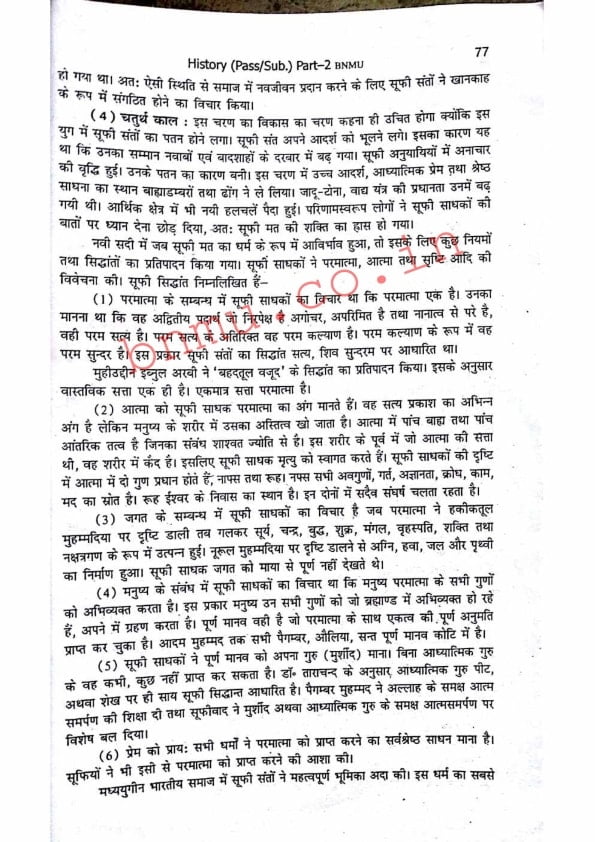 77
History (Pass/Sub.) Part–2 BNMU
हो गया था। अतः ऐसी स्थिति से समाज में नवजीवन प्रदान करने के लिए सूफी संतों ने खानकाह
के रूप में संगठित होने का विचार किया।
(4) चतुर्थ काल : इस चरण का विकास का चरण कहना ही उचित होगा क्योंकि इस
युग में सूफी संतों का पतन होने लगा। सूफी संत अपने आदर्श को भूलने लगे। इसका कारण यह
था कि उनका सम्मान नवाबों एवं बादशाहों के दरबार में बढ़ गया। सूफी अनुयायियों में अनाचार
की वृद्धि हुई। उनके पतन का कारण बनी। इस चरण में उच्च आदर्श, आध्यात्मिक प्रेम तथा श्रेष्ठ
साधना का स्थान बाह्याडम्बरों तथा ढोंग ने ले लिया। जादू-टोना, वाद्य यंत्र की प्रधानता उनमें बढ़
गयी थी। आर्थिक क्षेत्र में भी नयी हलचलें पैदा हुई। परिणामस्वरूप लोगों ने सूफी साधकों की
बातों पर ध्यान देना छोड़ दिया, अतः सूफी मत की शक्ति का ह्रास हो गया।
नवी सदी में जब सूफी मत का धर्म के रूप में आविर्भाव हुआ, तो इसके लिए कुछ नियमों
तथा सिद्धांतों का प्रतिपादन किया गया। सूफी साधकों ने परमात्मा, आत्मा तथा सृष्टि आदि की
विवेचना की। सूफी सिद्धांत निम्नलिखित हैं–
(1) परमात्मा के सम्बन्ध में सूफी साधकों का विचार था कि परमात्मा एक है। उनका
मानना था कि वह अद्वितीय पदार्थ जो निरपेक्ष है अगोचर, अपरिमित है तथा नानात्व से परे है,
वही परम सत्य है। परम सत्य के अतिरिक्त वह परम कल्याण है। परम कल्याण के रूप में वह
परम सुन्दर है। इस प्रकार सूफी संतों का सिद्धांत सत्य, शिव सुन्दरम पर आधारित था।
मुहीउद्दीन इब्नुल अरबी ने 'बहदतूल वजूद' के सिद्धांत का प्रतिपादन किया। इसके अनुसार
वास्तविक सत्ता एक ही है। एकमात्र सत्ता परमात्मा है।
(2) आत्मा को सूफी साधक परमात्मा का अंग मानते हैं। वह सत्य प्रकाश का अभिन्न
अंग है लेकिन मनुष्य के शरीर में उसका अस्तित्व खो जाता है। आत्मा में पांच बाह्य तथा पांच
आंतरिक तत्व है जिनका संबंध शाश्वत ज्योति से है। इस शरीर के पूर्व में जो आत्मा की सत्ता
थी, वह शरीर में कैद है। इसलिए सूफी साधक मृत्यु को स्वागत करते हैं। सूफी साधकों की दृष्टि
में आत्मा में दो गुण प्रधान होते हैं, नाफ्स तथा रूह। नफ्स सभी अवगुणों, गर्त, अज्ञानता, क्रोध, काम,
मद का स्रोत है। रूह ईश्वर के निवास का स्थान है। इन दोनों में सदैव संघर्ष चलता रहता है।
(3) जगत के सम्बन्ध में सूफी साधकों का विचार है जब परमात्मा ने हकीकतूल
मुहम्मदिया पर दृष्टि डाली तब गलकर सूर्य, चन्द्र, बुद्ध, शुक्र, मंगल, वृहस्पति, शक्ति तथा
नक्षत्रगण के रूप में उत्पन्न हुई। नूरूल मुहम्मदिया पर दृष्टि डालने से अग्नि, हवा, जल और पृथ्वी
का निर्माण हुआ। सूफी साधक जगत को माया से पूर्ण नहीं देखते थे।
(4) मनुष्य के संबंध में सूफी साधकों का विचार था कि मनुष्य परमात्मा के सभी गुणों
को अभिव्यक्त करता है। इस प्रकार मनुष्य उन सभी गुणों को जो ब्रह्माण्ड में अभिव्यक्त हो रहे
हैं, अपने में ग्रहण करता है। पूर्ण मानव वही है जो परमात्मा के साथ एकत्व की पूर्ण अनुमति
प्राप्त कर चुका है। आदम मुहम्मद तक सभी पैगम्बर, औलिया, सन्त पूर्ण मानव कोटि में है।
(5) सूफी साधकों ने पूर्ण मानव को अपना गुरु (मुर्शीद) माना। बिना आध्यात्मिक गुरु
के वह कभी, कुछ नहीं प्राप्त कर सकता है। डॉ॰ ताराचन्द के अनुसार आध्यात्मिक गुरु पीट,
अथवा शेख पर ही साय सूफी सिद्धान्त आधारित है। पैगम्बर मुहम्मद ने अल्लाह के समक्ष आत्म
समर्पण की शिक्षा दी तथा सूफीवाद ने मुर्शीद अथवा आध्यात्मिक गुरु के समक्ष आत्मसमर्पण पर
विशेष बल दिया।
(6) प्रेम को प्रायः सभी धर्मों ने परमात्मा को प्राप्त करने का सर्वश्रेष्ठ साधन माना है।
सूफियों ने भी इसी से परमात्मा को प्राप्त करने की आशा की।
मध्ययुगीन भारतीय समाज में सूफी संतों ने महत्वपूर्ण भूमिका अदा की। इस धर्म का सबसे
bnmu.co.in